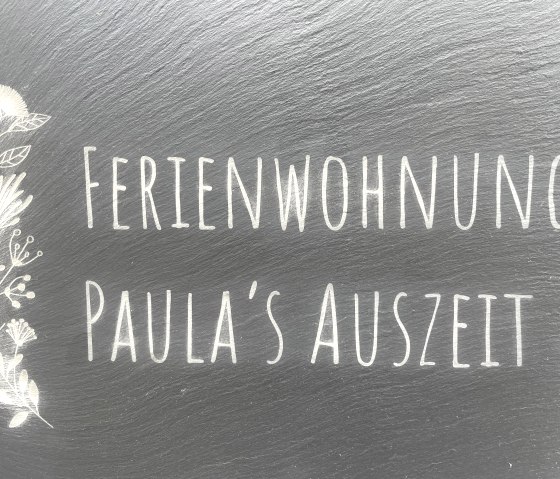 FERIENWOHNUNG
PAULA'S AUSZEIT